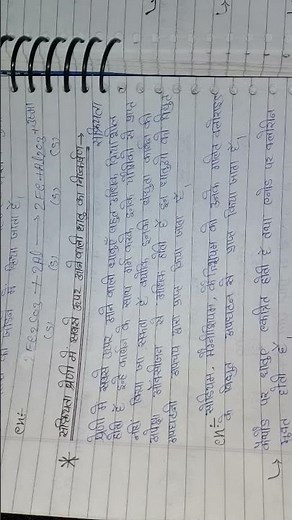 को जोड़ने में किया जाता है,
eN:- Fe2O3 + 2Al → 2Fe + Al2O3 + ऊष्मा
(s) (s) (s) (s)
* सक्रियता श्रेणी में सबसे ऊपर आने वाली धातु का निष्कर्षण →
सक्रियता
श्रेणी में सबसे ऊपर आने वाली धातुएँ बहुत अधिक क्रियाशील
होती है, इन्हें कार्बन के साथ गर्म करके, इनके यौगिकों से प्राप्त
नहीं किया जा सकता है क्योंकि इनकी बंधुता कार्बन की
अपेक्षा ऑक्सीजन से अधिक होती है इन धातुओं को विद्युत
अपघटनी अपचयन द्वारा प्राप्त किया जाता है,
eN:- सोडियम, मैग्नीशियम, कैल्शियम को उनके गलित क्लोराइड
के विद्युत अपघटन से प्राप्त किया जाता है,
कैथोड पर धातुएँ एकत्रित होती है तथा एनोड पर क्लोरीन
मुक्त होती है